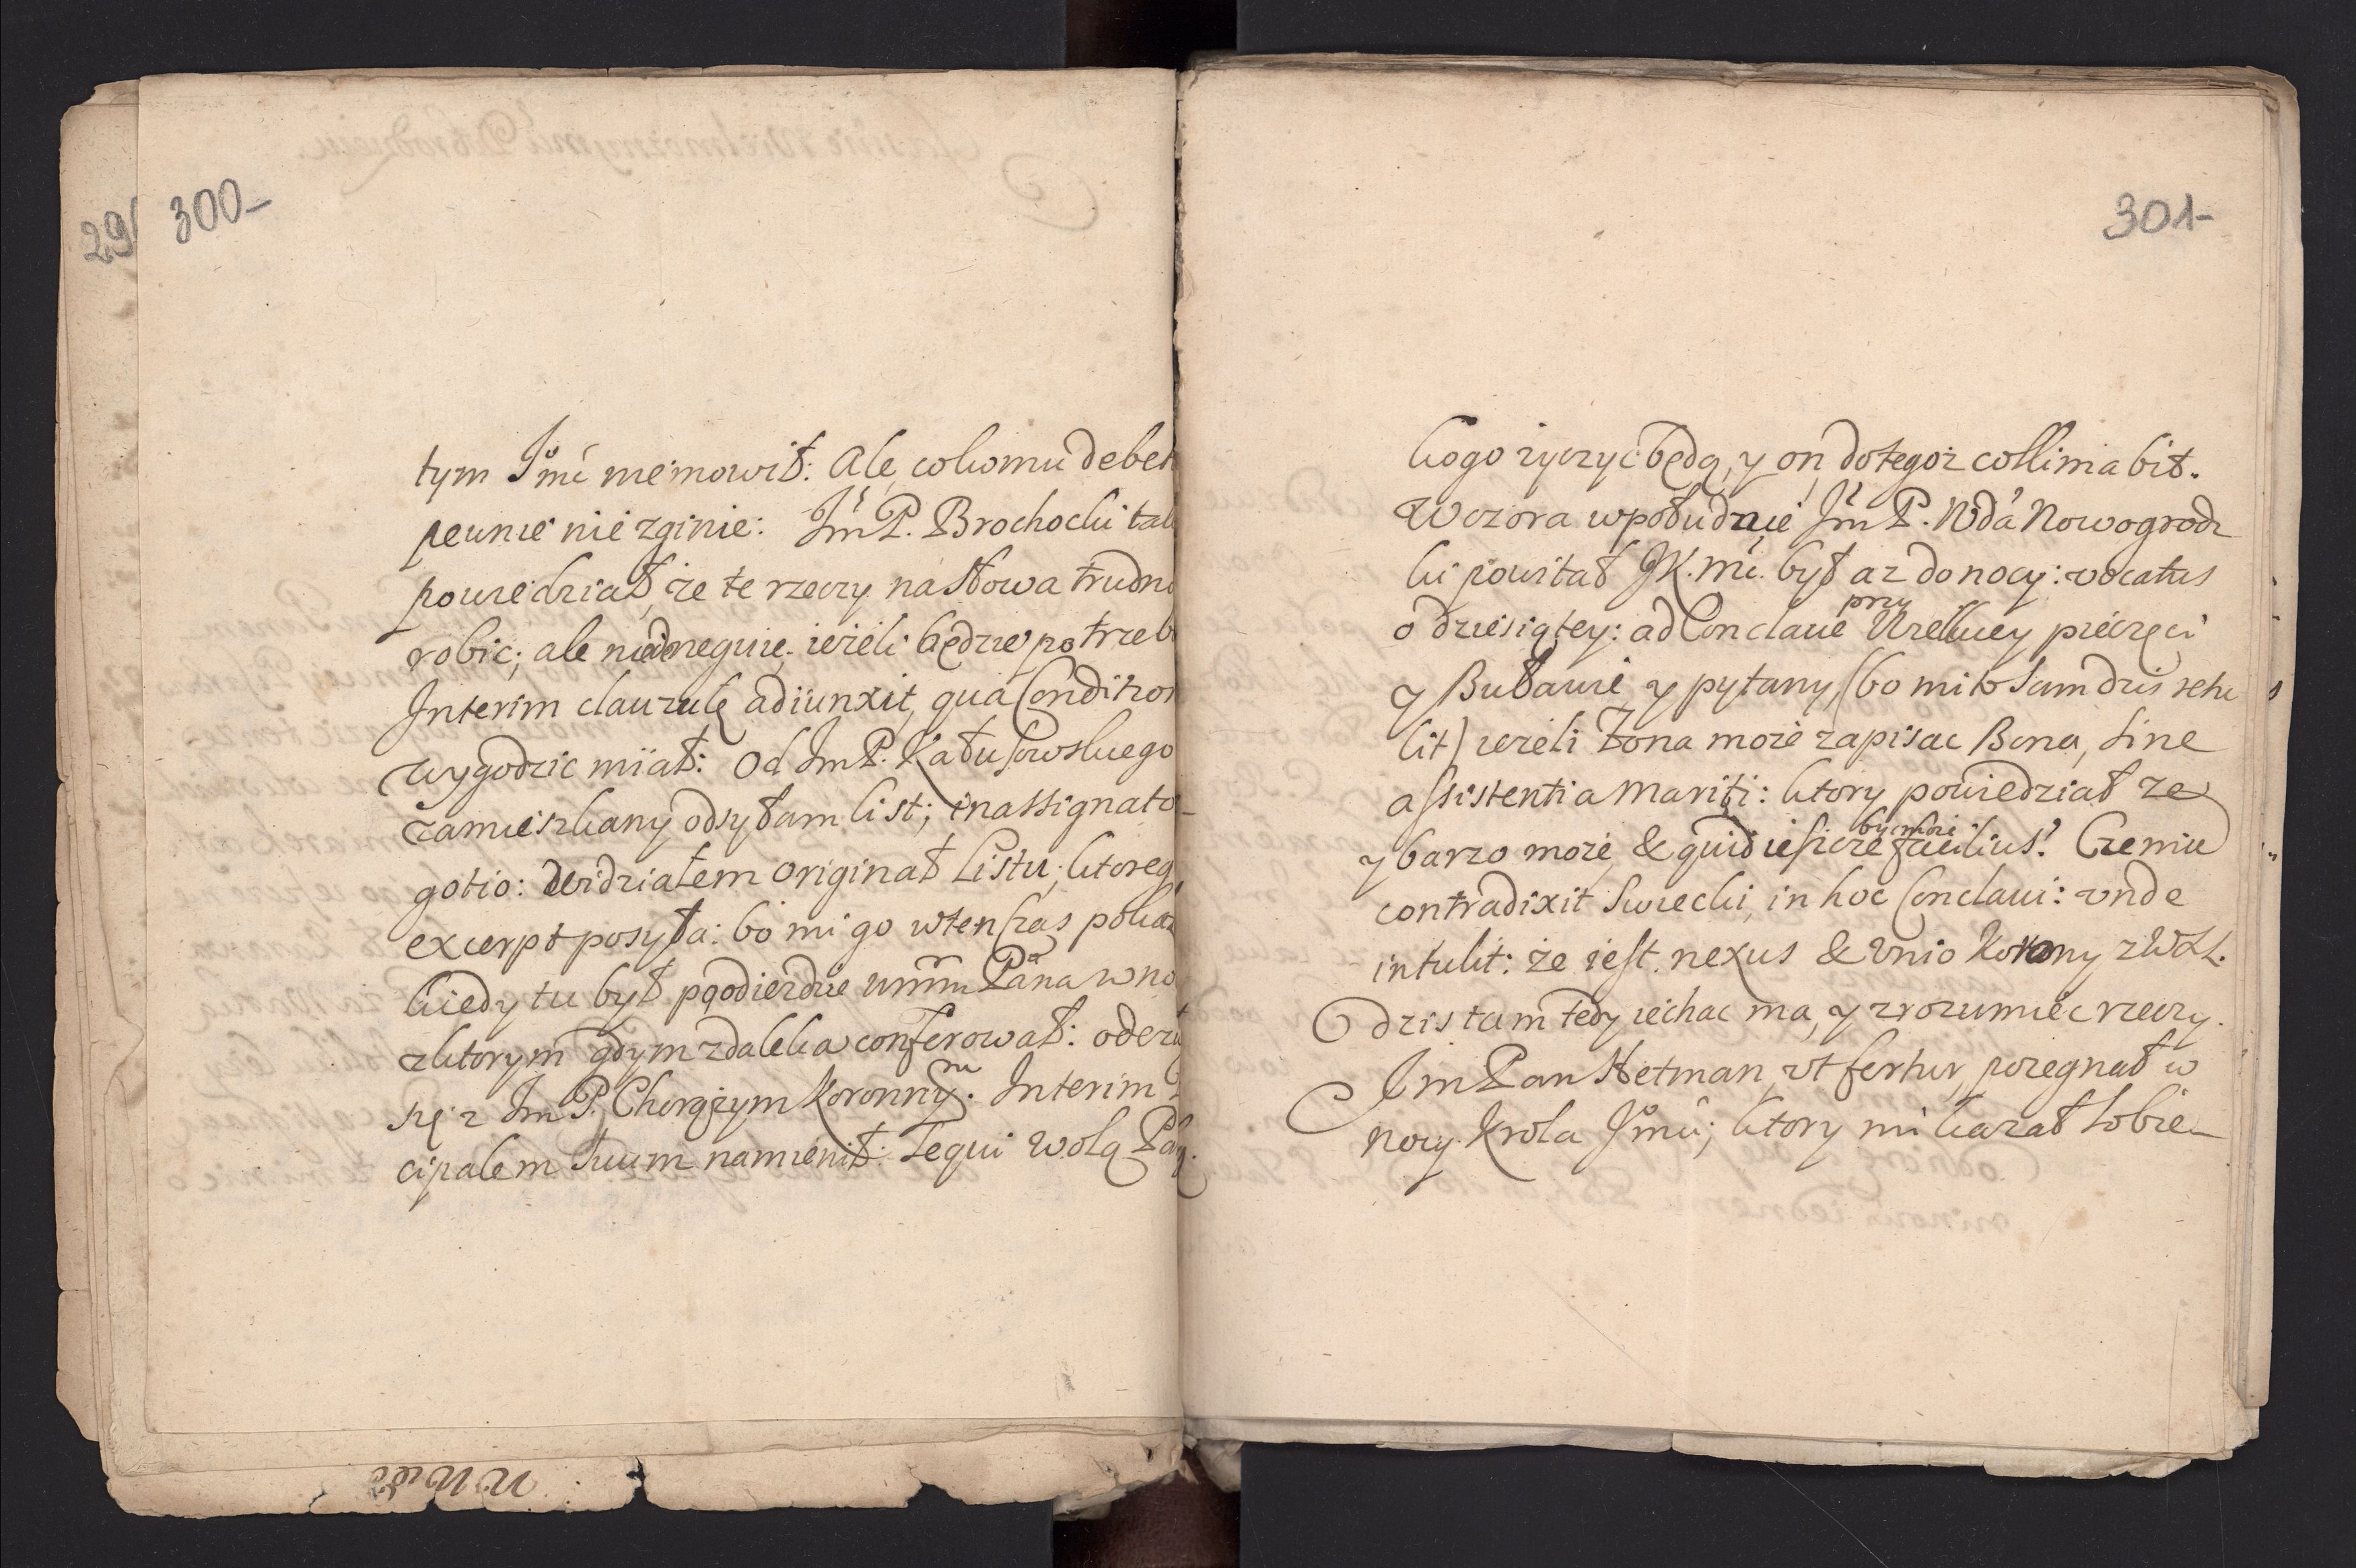 29
300-
tym Jmć nie mowił: Ale co komu debet
pewnie nie zginie: Jm P. Brochocki tak
powiedział, że te rzeczy na słowa trudno
robic; ale nie denegуie, ieżeli będzie potrzeb
Interim clauzulę adiunxit, qua Condition
wygodzic miał: Od Jm P. Kałussowskiego
zamieszkany odsyłam list; in assignato
gotio: Widziałem Originał Listu; ktoreg
excerpt posyła: bo mi go wten czas pokaz
kiedy tu był po odieżdie Wmm Pana w no
z ktorym gdym zdaleka conferował: odezw
się z Jm P. Chorążym Koronnym. Interim
cipalem suum namienił: Sequi Wolą Pań.
301-
kogo życzyć będą, y on do tegoż collimabit.
Wczora w południe Jm P. Wda Nowogrodz
ki powitał JK. Mć. był az do nocy: vocatus
o dziesiątey: ad Conclave przy Wielkiey pieczęci
y Buławie y pytany, (bo mi to sam dzis retu
lit) ieżeli Żona może zapisac Bona, sine
assistentia Mariti: ktory powiedział ze
y barzo może, & quid iescze być może facilius? Czemu
contradixit Swiecki, in hoc Conclavi: vnde
intulit: że iest nexus & Vnio Korony z WXL.
dzis tam tedy iechac ma, y zrozumiec rzeczy.
Jm Pan Hetman, vt fertur, pożegnał w
nocy Krola Jmći; ktory mi kazał sobie